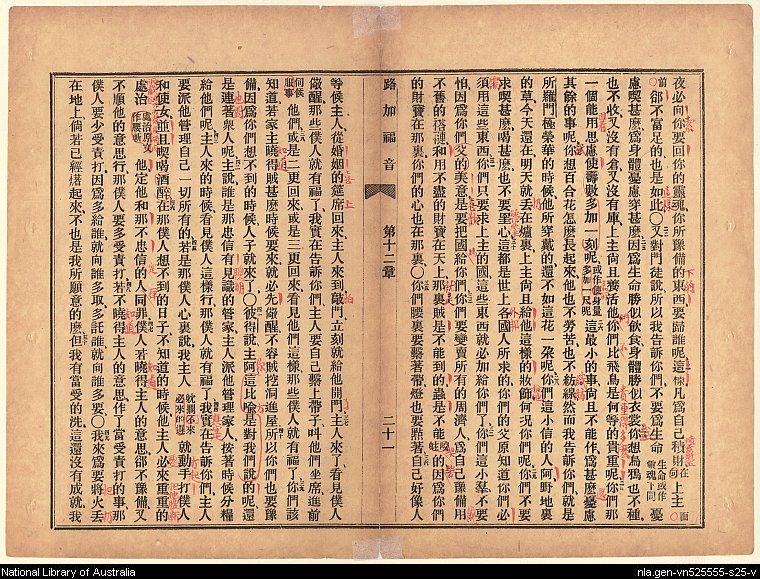 夜必向你要回你的靈魂你所豫備的東西要歸誰呢這樣凡爲自己積財在上主面
前卻不富足的也是如此○又對門徒說所以我告訴你們不要爲生命生命或作靈魂下同憂
慮喫甚麽爲身體憂慮穿甚麽因爲生命勝似飲食身體勝似衣裳你想烏鴉也不種
也不收又沒有倉又沒有庫上主尚且養活他你們比飛鳥是何等的貴重呢你們那
一個能用思慮使壽數多加一刻呢或作使身量多加一尺呢這最小的事尚且不能作爲甚麽憂慮
其餘的事呢你想百合花怎麽長起來他也不勞苦也不紡線然而我告訴你們就是
所羅門極榮華的時候他所穿戴的還不如這花一朶呢你們這小信的人阿野地裏
的草今天還在明天就丟在爐裏上主尚且給他這樣的妝飾何況你們呢你們不要
求喫甚麽喝甚麽也不要罣心這都是世上各國人所求的你們的父原知道你們必
須用這些東西你們只要求上主的國這些東西就必加給你們了你們這小羣不要
怕因爲你們父的美意是要把國給你們你們要變賣所有的周濟人爲自己豫備用
不舊的搭褳和用不盡的財寶在天上那裏賊是不能到的蟲是不能蛀的因爲你們
的財寶在那裏你們的心也在那裏○你們腰裏要繫著帶燈也要點著自己好像人
路加福音 第十二章 二十一
等候主人從婚姻的筵席回來主人來到敲門立刻就給他開門主人來了看見僕人
儆醒那些僕人就有福了我實在告訴你們主人要自己繫上帶子叫他們坐席進前
伺候服事他們或是二更回來或是三更回來看見他們這樣那些僕人就有福了你們該
知道若家主曉得賊甚麽時候要來就必先儆醒不容賊挖洞進屋所以你們也要豫
備因爲你們想不到的時候人子就來了○彼得說主阿這比喻是對我們說的呢還
是連著衆人呢主說誰是那忠信有見識的管家主人派他管理家人按著時候分糧
給他們呢主人來的時候看見僕人這樣行那僕人就有福了我實在告訴你們主人
要派他管理自己一切所有的若是那僕人心裏說我主人必來的遲就動手打僕人
和使女並且喫喝酒醉在那僕人想不到的日子不知道的時候他主人必來重重的
處治處治原文作腰斬他定他和那不忠信的人同罪僕人若曉得主人的意思卻不豫備又
不順他的意思行那僕人要多受責打若不曉得主人的意思作了當受責打的事那
僕人要少受責打因爲多給誰就向誰多取多託誰就向誰多要○我來爲要將火丟
在地上倘若已經著起來不也是我所願意的麽但我有當受的洗這還沒有成就我
National Library of Australia
nla.gen-vn525555-s25-v